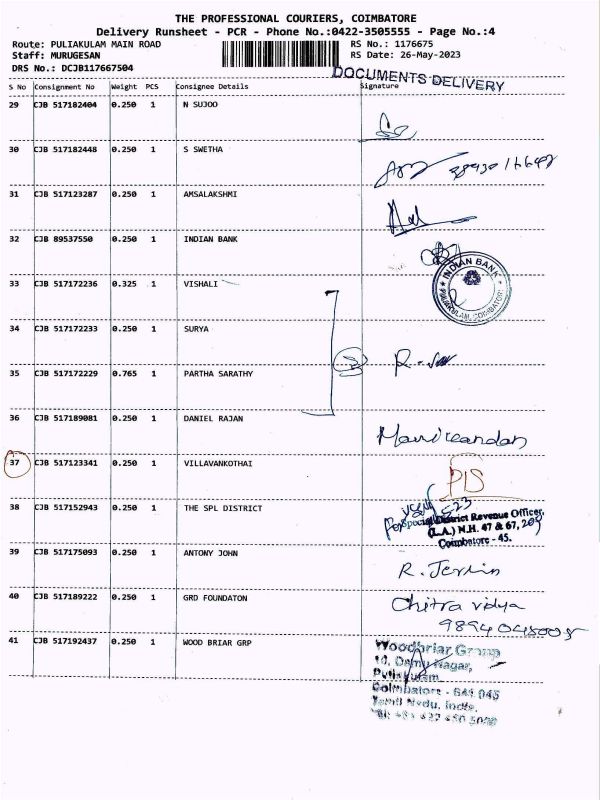 THE PROFESSIONAL COURIERS, COIMBATORE
Delivery Runsheet - PCR - Phone No.:0422-3505555 - Page No.:4
Route: PULIAKULAM MAIN ROAD RS No.: 1176675
Staff: MURUGESAN RS Date: 26-May-2023
DRS No.: DCJB117667504
DOCUMENTS DELIVERY
S No Consignment No Weight PCS Consignee Details Signature
29 CJB 517182404 0.250 1 N SUJOO
30 CJB 517182448 0.250 1 S SWETHA
31 CJB 517123287 0.250 1 AMSALAKSHMI
32 CJB 89537550 0.250 1 INDIAN BANK
INDIAN BANK
PULIAKULAM, COIMBATORE
33 CJB 517172236 0.325 1 VISHALI
34 CJB 517172233 0.250 1 SURYA
35 CJB 517172229 0.765 1 PARTHA SARATHY
36 CJB 517189081 0.250 1 DANIEL RAJAN
Manikandan
37 CJB 517123341 0.250 1 VILLAVANKOTHAI
PIS
38 CJB 517152943 0.250 1 THE SPL DISTRICT
Special District Revenue Officer,
(L.A.) N.H. 47 & 67,
Coimbatore - 45.
39 CJB 517175093 0.250 1 ANTONY JOHN
R. Jerlin
40 CJB 517189222 0.250 1 GRD FOUNDATON
Chitra vidya
41 CJB 517192437 0.250 1 WOOD BRIAR GRP
Woodbriar Group
Nagar,
Puliakulam
Coimbatore - 641 045
Tamil Nadu, India.